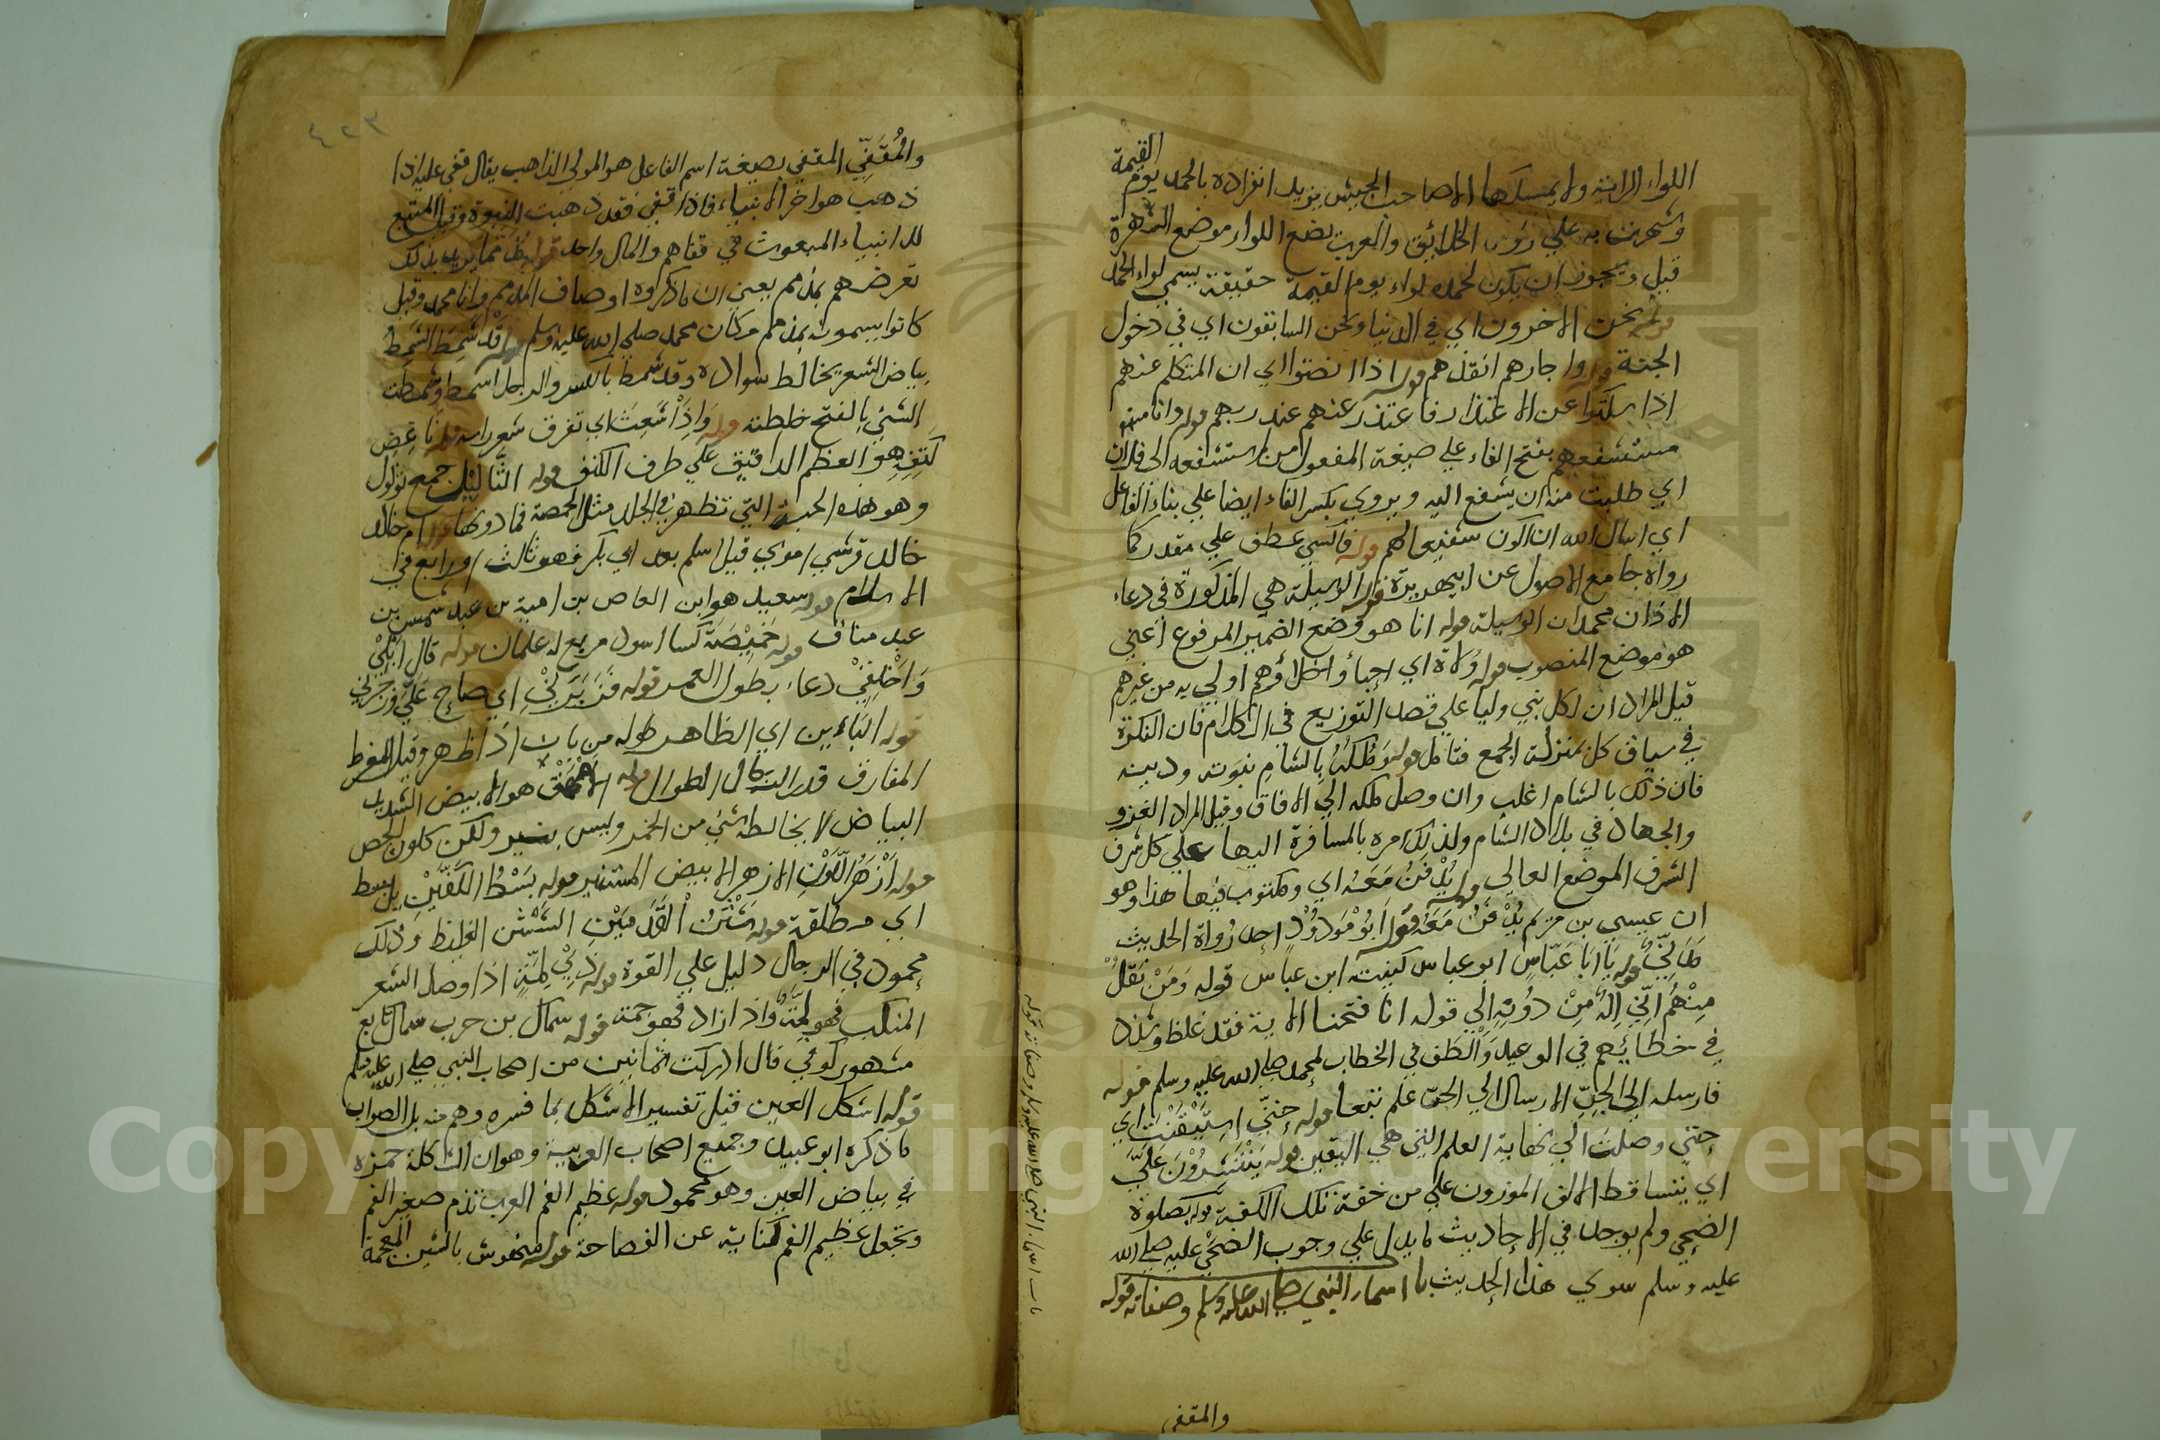 القيمة
اللواء الراية ولا يمسكها الا صاحب الجيش يريد انفراده بالحمد يوم
وشهرته به علي رؤس الخلائق والعرب تضع اللواء موضع الشهرة
قيل ويجوز ان يكون لحمده لواء يوم القيمة حقيقة يسمي لواء الحمد
قوله نحن الاخرون اي في الدنيا ونحن السابقون اي في دخول
الجنة قوله واجارهم انقذهم قوله اذا انصتوا اي ان المتكلم عنهم
اذا سكتوا عن الاعتذار فاعتذر عنهم عند ربهم قوله وانا
مستشفعهم بفتح الفاء علي صيغة المفعول من استشفعه الى فلان
اي طلبت منه ان يشفع اليه ويروي بكسر الفاء ايضا علي بناء الفاعل
اي اسال الله ان اكون شفيعا لهم قوله فاكسي عطف علي مقدر كما
رواه جامع الاصول عن ابيهريرة قوله الوسيلة هي المذكورة في دعاء
الاذان محمدان الوسيلة قوله انا هو وضع الضمير المرفوع اعني
هو موضع المنصوب قوله ولاة اي احباء واخلاؤهم اولي به من غيرهم
قيل المراد ان لكل نبي وليا علي قصد التوزيع في الكلام فان النكرة
في سياق كل بمنزلة الجمع فتامل قوله وملكه بالشام نبوته ودينه
فان ذلك بالشام اغلب وان وصل ملكه الي الافاق وقيل المراد الغزو
والجهاد في بلاد الشام ولذلك امره بالمسافرة اليها علي كل شرف
الشرف الموضع العالي قوله يدفن معه اي ومكتوب فيها هذا وهو
ان عيسي بن مريم يدفن معه قوله ابو مودود احد رواة الحديث
قوله يا ابا عباس ابو عباس كنيت ابن عباس قوله ومن يقل
منهم اني اله من دونه الي قوله انا فتحنا الاية فقد غلظ وشدد
في خطابهم في الوعيد والطف في الخطاب لمحمد صلي الله عليه وسلم قوله
فارسله الى الجن الارسال الي الجن علم تبعا قوله حتي استيقنت اي
حتي وصلت الي نهاية العلم التي هي اليقين قوله ينتثرون علي
اي يتساقط الالف الموزون علي من خفة تلك الكفة قوله بصلوة
الضحي ولم يوجد في الاحاديث ما يدل علي وجوب الضحي عليه صلي الله
عليه وسلم سوي هذا الحديث باب اسماء النبي صلي الله عليه وسلم وصفاته قوله
والمقفي
باب اسماء النبي صلي الله عليه وسلم وصفاته قوله
٤٢٣
والمقفي المقفي بصيغة اسم الفاعل هو المولي الذاهب يقال قفي عليه اذا
ذهب هو اخر الانبياء فاذا قفي فقد ذهبت النبوة وقيل المتبع
للانبياء المبعوث في قفاهم والمال واحد قوله مذمما يريد بذلك
تعرضهم بمذمم يعني ان ما ذكروه اوصاف المذمم وانا محمد وقيل
كانوا يسمونه بمذمم مكان محمد صلي الله عليه وسلم قوله قد شمط الشمط
بياض الشعر يخالط سواده وقد شمط بالكسر والرجل اشمط وشمطت
الشئ بالفتح خلطته قوله واذا شعث اي تفرق شعر راسه قوله ناغض
كتفه هو العظم الدقيق علي طرف الكتف قوله الثاليل جمع ثؤلول
وهو هذه الحبة التي تظهر في الجلد مثل الحمصة فما دونها قوله ام خالد
خالد قرشي اموي قيل اسلم بعد ابي بكر فهو ثالث او رابع في
الاسلام قوله سعيد هو ابن العاص بن امية بن عبد شمس بن
عبد مناف قوله خميصة كساء اسود مربع له علمان قوله قال ابلي
واخلقي دعاء بطول العمر قوله فزبرني اي صاح علي وزجرني
قوله البائن اي الظاهر طوله من بان اذا ظهر وقيل المفرط
المفارق قدر الرجال الطوال قوله الامهق هو الابيض الشديد
البياض لا يخالطه شئ من الحمر وليس بنير ولكن كلون الجص
قوله ازهر اللون الازهر الابيض المستنير قوله بسط الكفين
اي مطلقة قوله شثن القدمين الشثن الغليظ وذلك
محمود في الرجال دليل علي القوة قوله ذي لمة اذا وصل الشعر
المنكب فهو لمة واذا زاد فهو جمة قوله سماك بن حرب سماك تابع
مشهور كوفي قال ادركت ثمانين من اصحاب النبي صلي الله عليه وسلم
قوله اشكل العين قيل تفسير الاشكل بما فسره وهم منه بل الصواب
ما ذكره ابو عبيد وجميع اصحاب العربية وهو ان الشاكلة حمرة
في بياض العين وهو محمود قوله عظيم الفم العرب تذم صغير الفم
وتجعل عظيم الفم كناية عن الفصاحة قوله منهوش بالشين المعجمة
Copyright © King Saud University